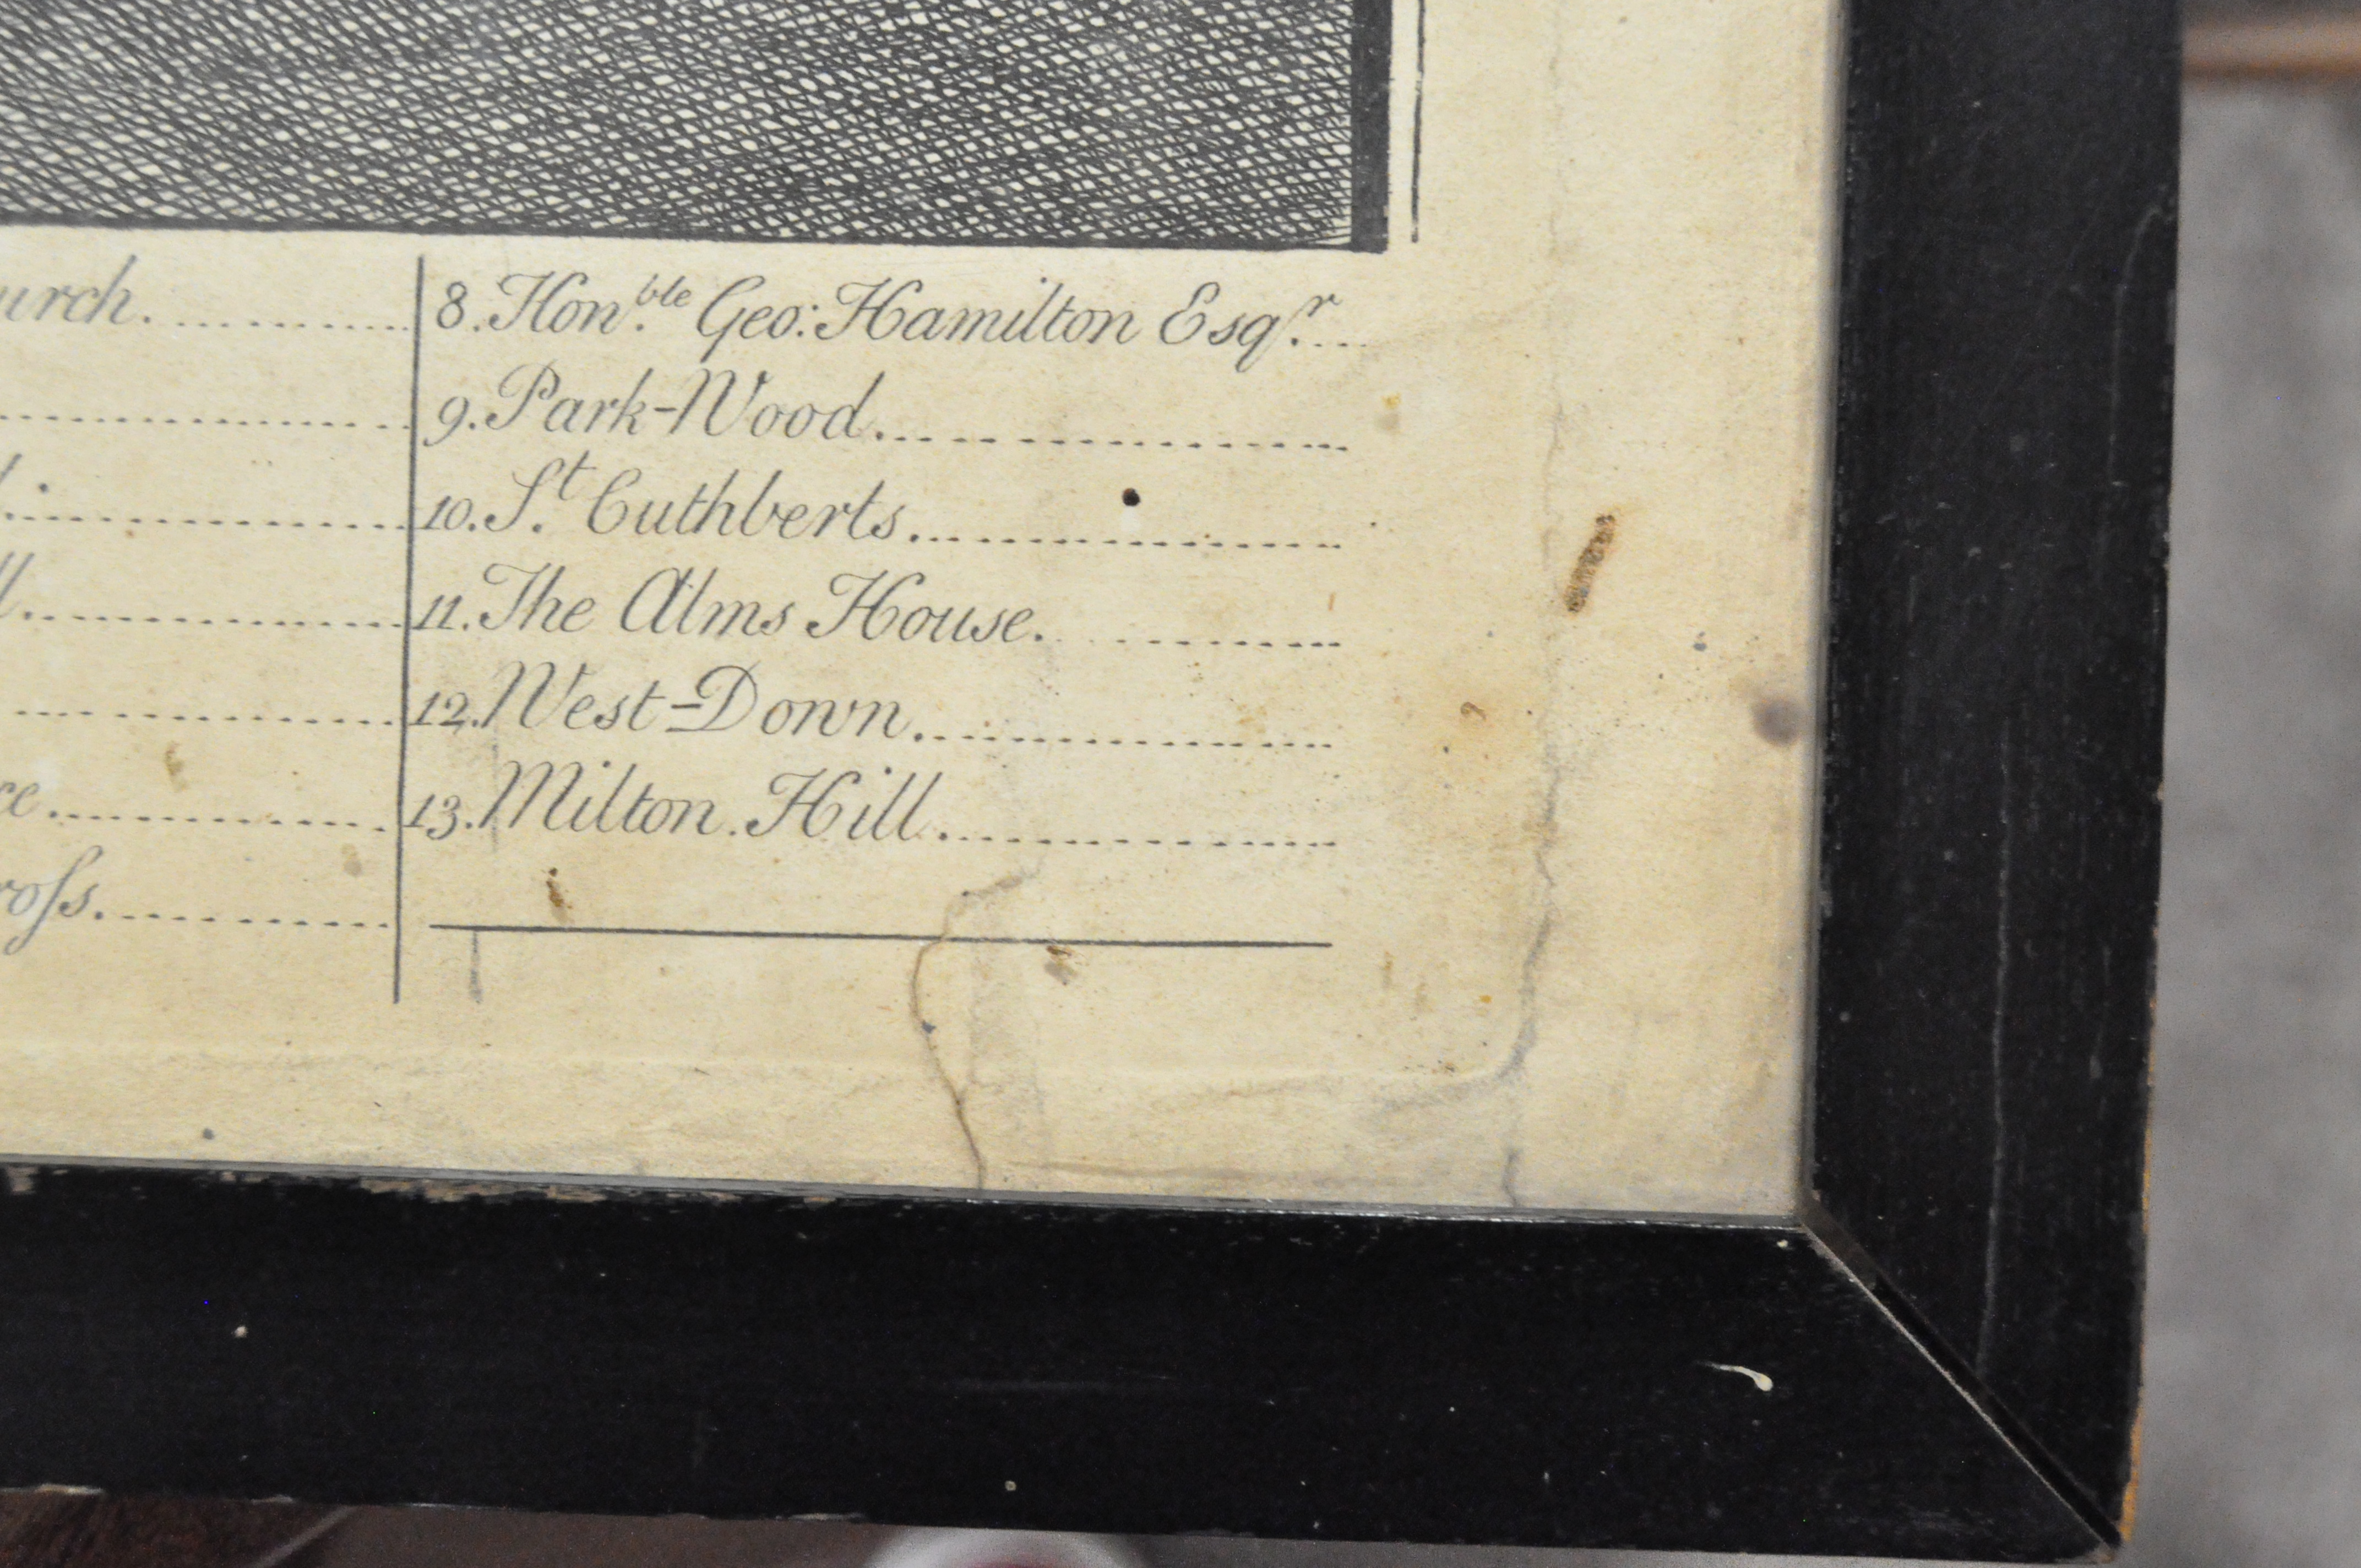 8. Hon.ble Geo: Hamilton Esq.r
9. Park-Wood
10. S.t Cuthberts
11. The Alms House.
12. West-Down
13. Milton. Hill